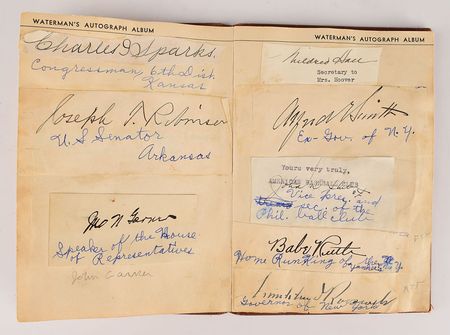 WATERMAN'S AUTOGRAPH ALBUM
Charles I Sparks.
Congressman 6th Dist.
Kansas
Joseph T. Robinson
U.S Senator
Arkansas
Jno N Garner
Speaker of the House
of Representatives
John Garner
WATERMAN'S AUTOGRAPH ALBUM
Mildred Hall
Secretary to
Mrs. Hoover
Alfred E Smith
Ex-Gov. of N.Y.
Yours very truly,
AMERICAN BASEBALL CLUB
Vice pres. and
sec. of the
Phil. ball club
Babe Ruth
Home Run King of the N.Y.
Yankees
Franklin D Roosevelt
Governor of New York